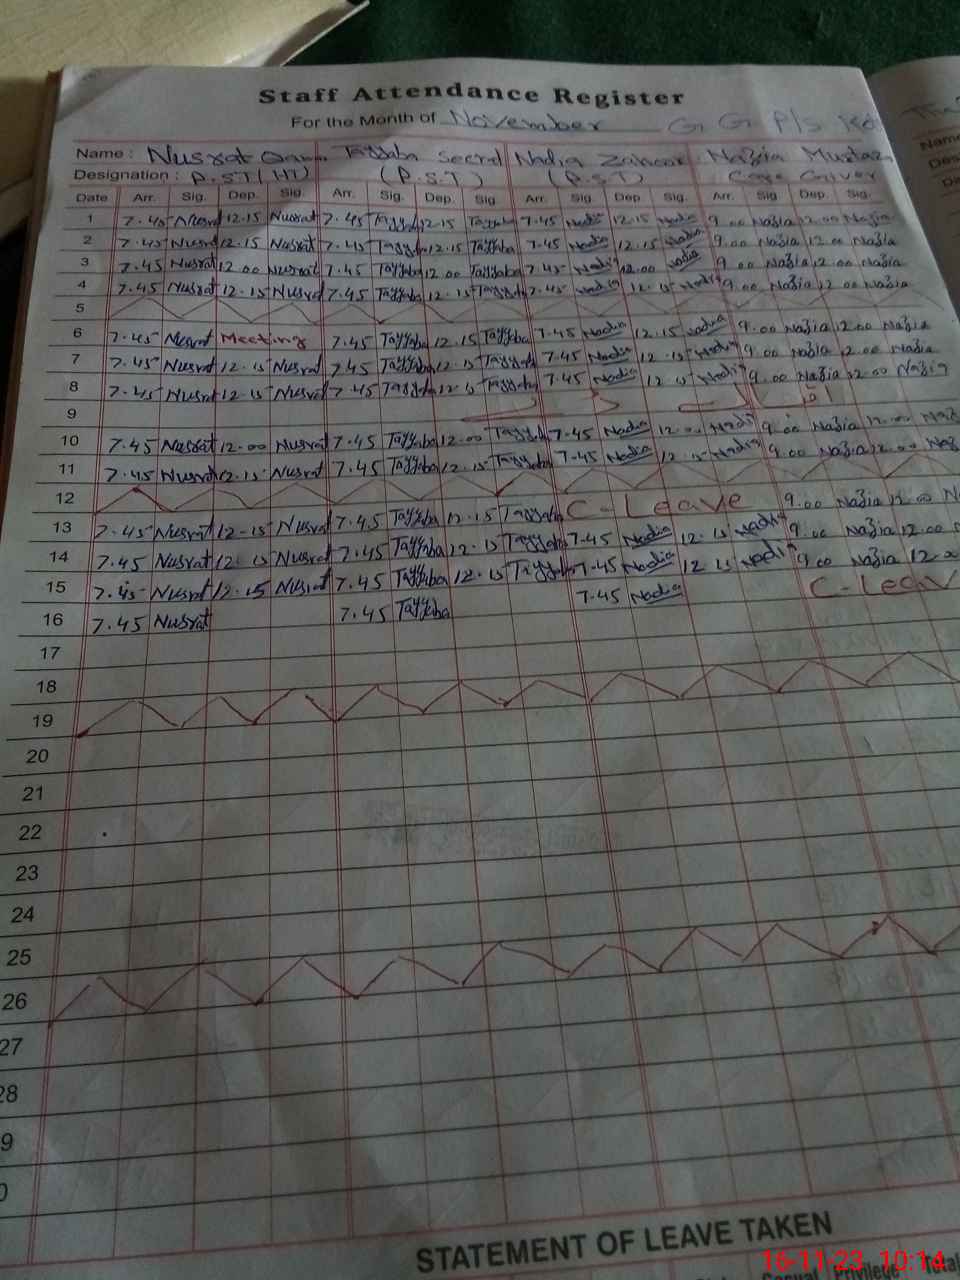 Staff Attendance Register
For the Month of November G G P/S
Name : Nusrat Tayyaba Nadia Nazia
Designation : P.S.T (HT) (P.S.T) (P.S.T) Care Giver
Date Arr. Sig. Dep. Sig. Arr. Sig. Dep. Sig. Arr. Sig. Dep. Sig. Arr. Sig. Dep. Sig.
1 7.45 Nusrat 12.15 Nusrat 7.45 Tayyaba 12.15 Tayyaba 7.45 Nadia 12.15 Nadia 9.00 Nazia 12.00 Nazia
2 7.45 Nusrat 12.15 Nusrat 7.45 Tayyaba 12.15 Tayyaba 7.45 Nadia 12.15 Nadia 9.00 Nazia 12.00 Nazia
3 7.45 Nusrat 12.00 Nusrat 7.45 Tayyaba 12.00 Tayyaba 7.45 Nadia 12.00 Nadia 9.00 Nazia 12.00 Nazia
4 7.45 Nusrat 12.15 Nusrat 7.45 Tayyaba 12.15 Tayyaba 7.45 Nadia 12.15 Nadia 9.00 Nazia 12.00 Nazia
5
6 7.45 Nusrat Meeting 7.45 Tayyaba 12.15 Tayyaba 7.45 Nadia 12.15 Nadia 9.00 Nazia 12.00 Nazia
7 7.45 Nusrat 12.15 Nusrat 7.45 Tayyaba 12.15 Tayyaba 7.45 Nadia 12.15 Nadia 9.00 Nazia 12.00 Nazia
8 7.45 Nusrat 12.15 Nusrat 7.45 Tayyaba 12.15 Tayyaba 7.45 Nadia 12.15 Nadia 9.00 Nazia 12.00 Nazia
9
10 7.45 Nusrat 12.00 Nusrat 7.45 Tayyaba 12.00 Tayyaba 7.45 Nadia 12.00 Nadia 9.00 Nazia 12.00
11 7.45 Nusrat 12.15 Nusrat 7.45 Tayyaba 12.15 Tayyaba 7.45 Nadia 12.15 Nadia 9.00 Nazia 12.00
12
13 7.45 Nusrat 12.15 Nusrat 7.45 Tayyaba 12.15 Tayyaba C-Leave 9.00 Nazia 12.00
14 7.45 Nusrat 12.15 Nusrat 7.45 Tayyaba 12.15 Tayyaba 7.45 Nadia 12.15 Nadia 9.00 Nazia 12.00
15 7.45 Nusrat 12.15 Nusrat 7.45 Tayyaba 12.15 Tayyaba 7.45 Nadia 12.15 Nadia 9.00 Nazia 12.00
16 7.45 Nusrat 7.45 Tayyaba 7.45 Nadia C-Leav
17
18
19
20
21
22
23
24
25
26
27
28
9
0
STATEMENT OF LEAVE TAKEN
Privilege Total
16-11-23 10:14